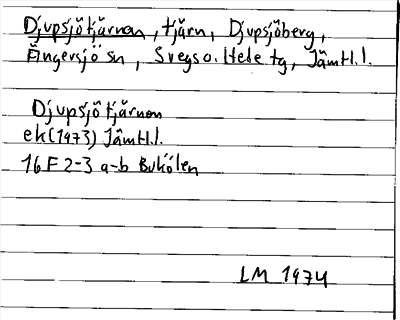 Djupsjötjärnen, tjärn, Djupsjöberg,
Ängersjö sn, Svegs o. Hede tg, Jämtl.l.
Djupsjötjärnen
ek (1973) Jämtl.l.
16 F 2-3 a-b Bukölen
LM 1974